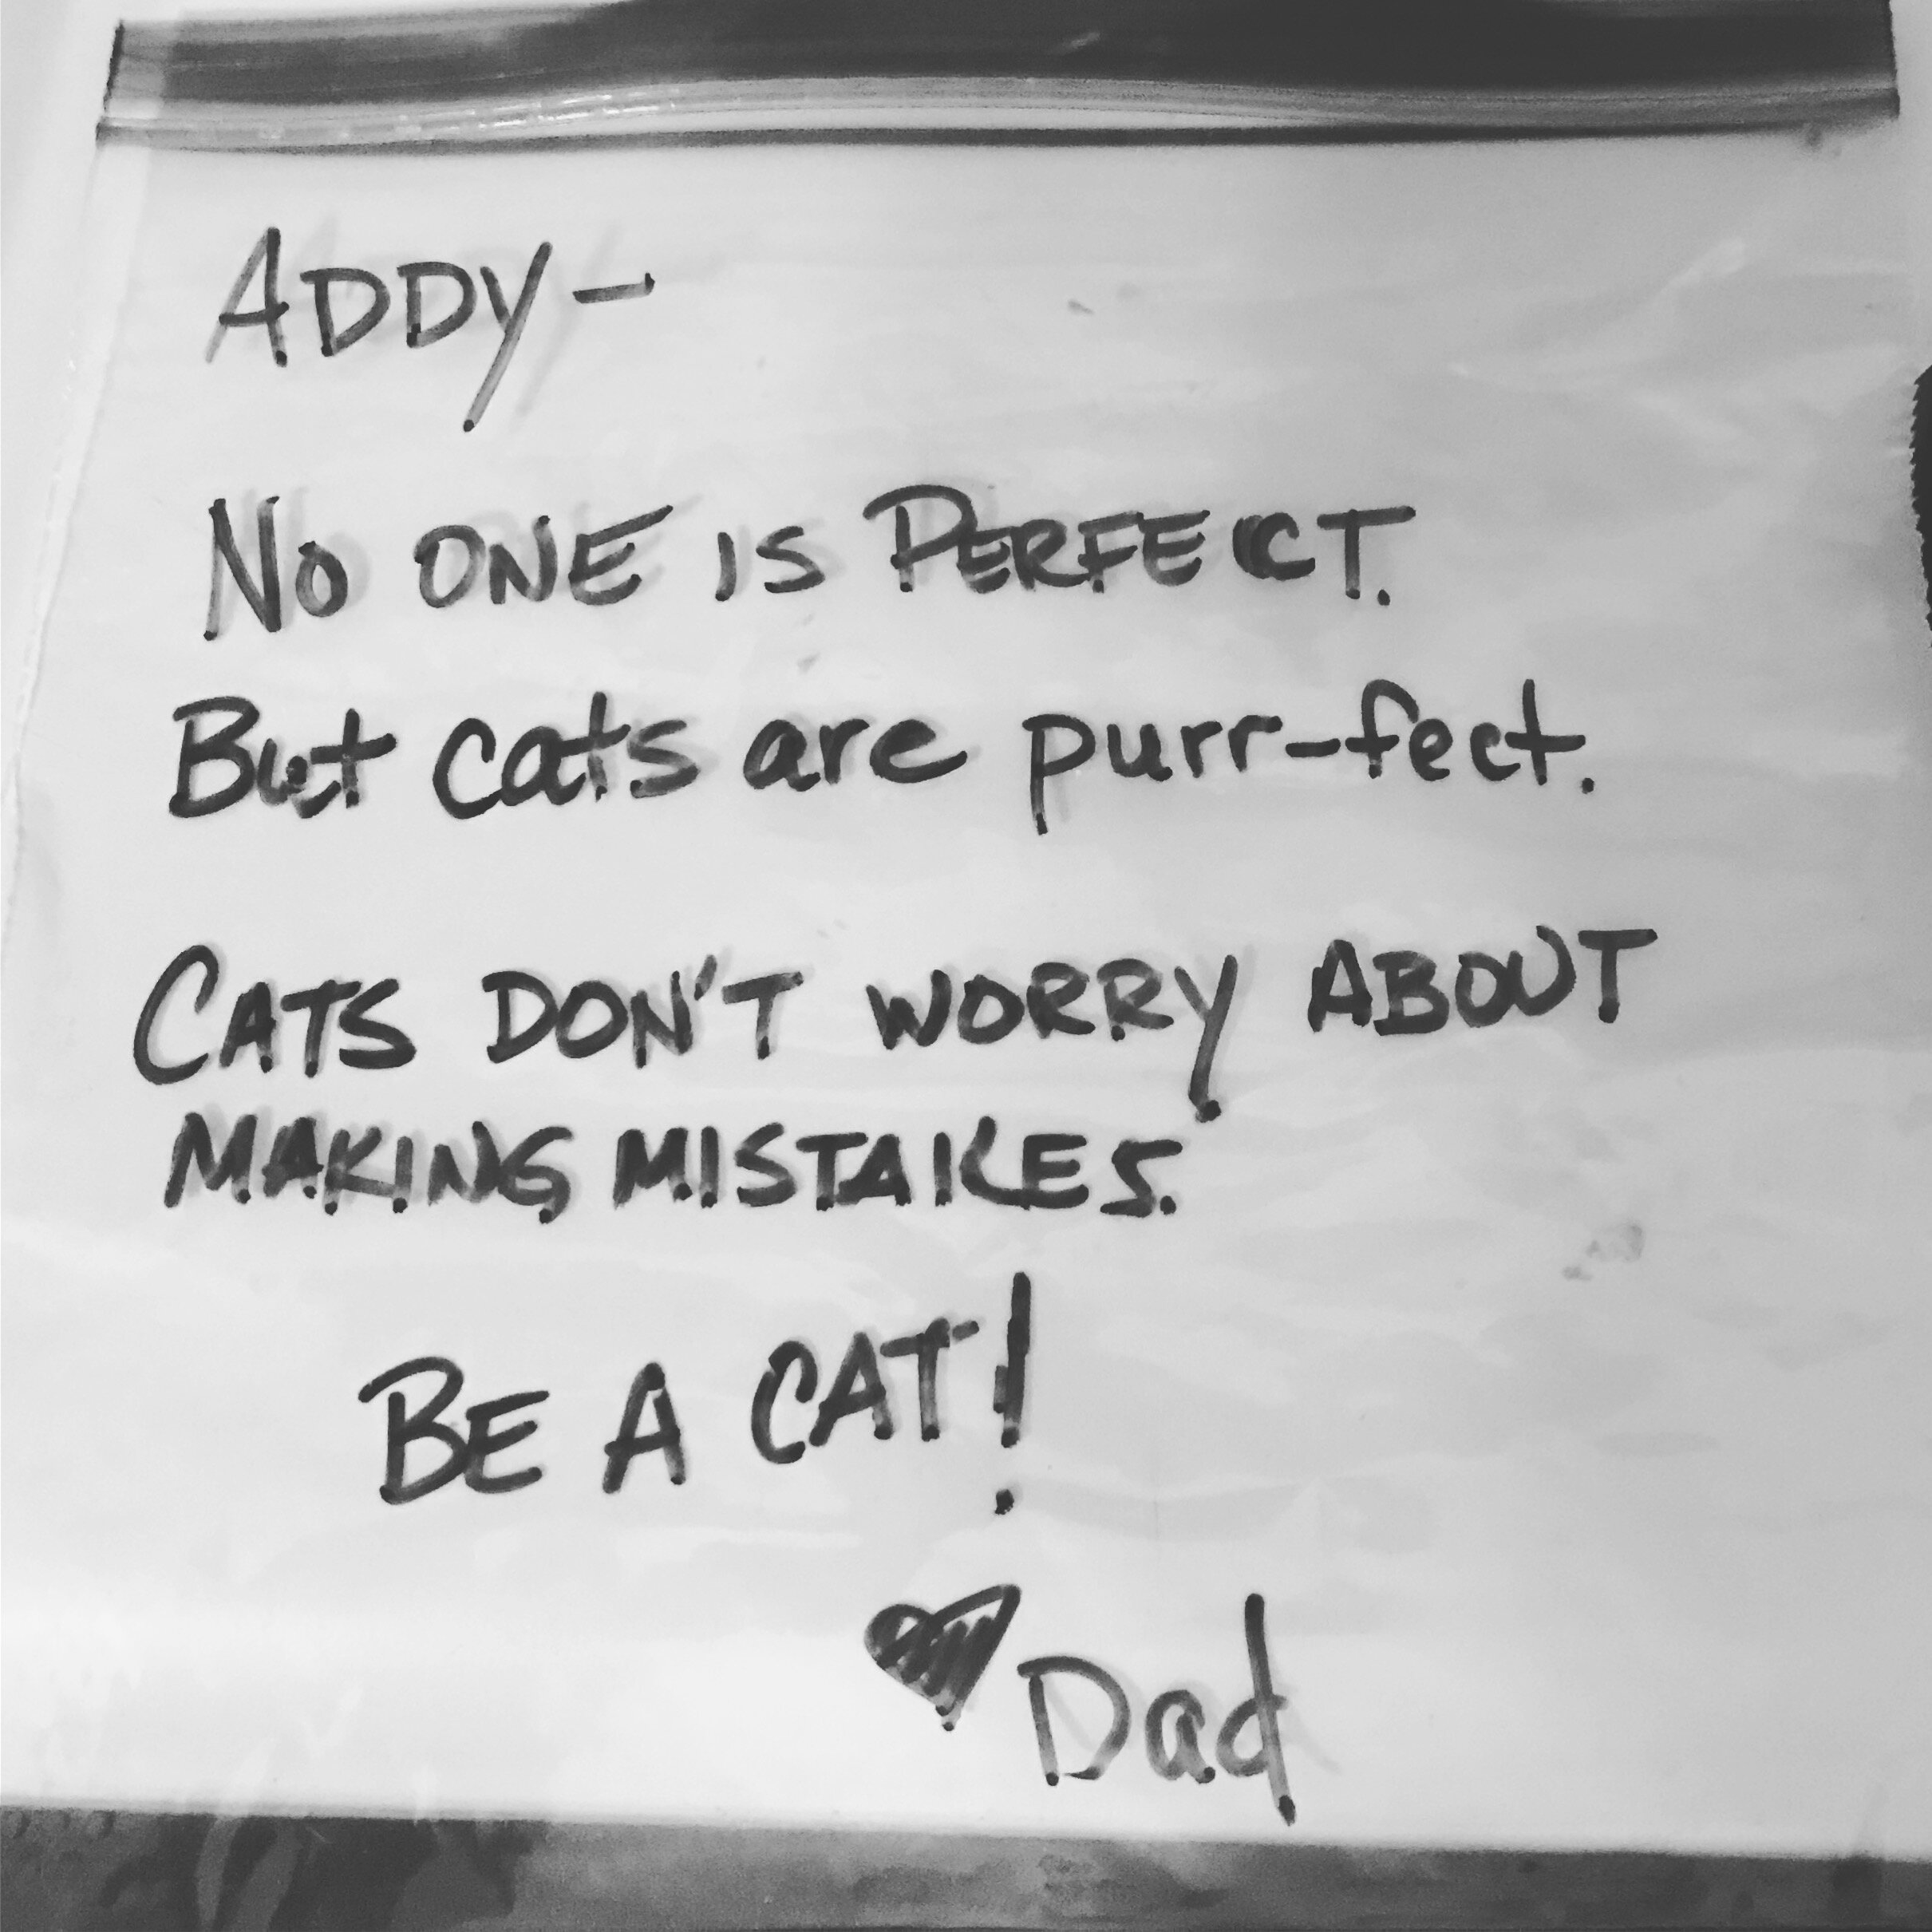 ADDY-
NO ONE IS PERFECT.
But cats are purr-fect.
CATS DON'T WORRY ABOUT
MAKING MISTAKES.
BE A CAT!
♥ Dad